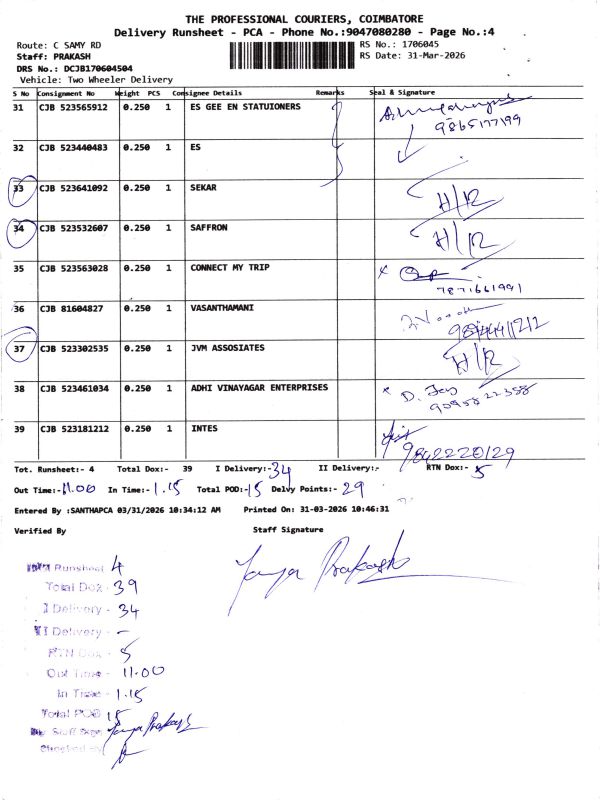 THE PROFESSIONAL COURIERS, COIMBATORE
Delivery Runsheet - PCA - Phone No.:9047080280 - Page No.:4
Route: C SAMY RD RS No.: 1706045
Staff: PRAKASH RS Date: 31-Mar-2026
DRS No.: DCJB170604504
Vehicle: Two Wheeler Delivery
S No Consignment No Weight PCS Consignee Details Remarks Seal & Signature
31 CJB 523565912 0.250 1 ES GEE EN STATUIONERS
9865177199
32 CJB 523440483 0.250 1 ES
33 CJB 523641092 0.250 1 SEKAR H/R
34 CJB 523532607 0.250 1 SAFFRON H/R
35 CJB 523563028 0.250 1 CONNECT MY TRIP x
7871661991
36 CJB 81604827 0.250 1 VASANTHAMANI
37 CJB 523302535 0.250 1 JVM ASSOSIATES H/R
38 CJB 523461034 0.250 1 ADHI VINAYAGAR ENTERPRISES x D.
39 CJB 523181212 0.250 1 INTES
9842220129
Tot. Runsheet:- 4 Total Dox:- 39 I Delivery:-34 II Delivery:- RTN Dox:- 5
Out Time:-11.00 In Time:-1.15 Total POD:-15 Delvy Points:-29
Entered By :SANTHAPCA 03/31/2026 10:34:12 AM Printed On: 31-03-2026 10:46:31
Verified By Staff Signature
Prakash
Runsheet 4
Total Dox - 39
I Delivery - 34
II Delivery - -
RTN Dox - 5
Out Time - 11.00
In Time - 1.15
Total POD 15
Prakash